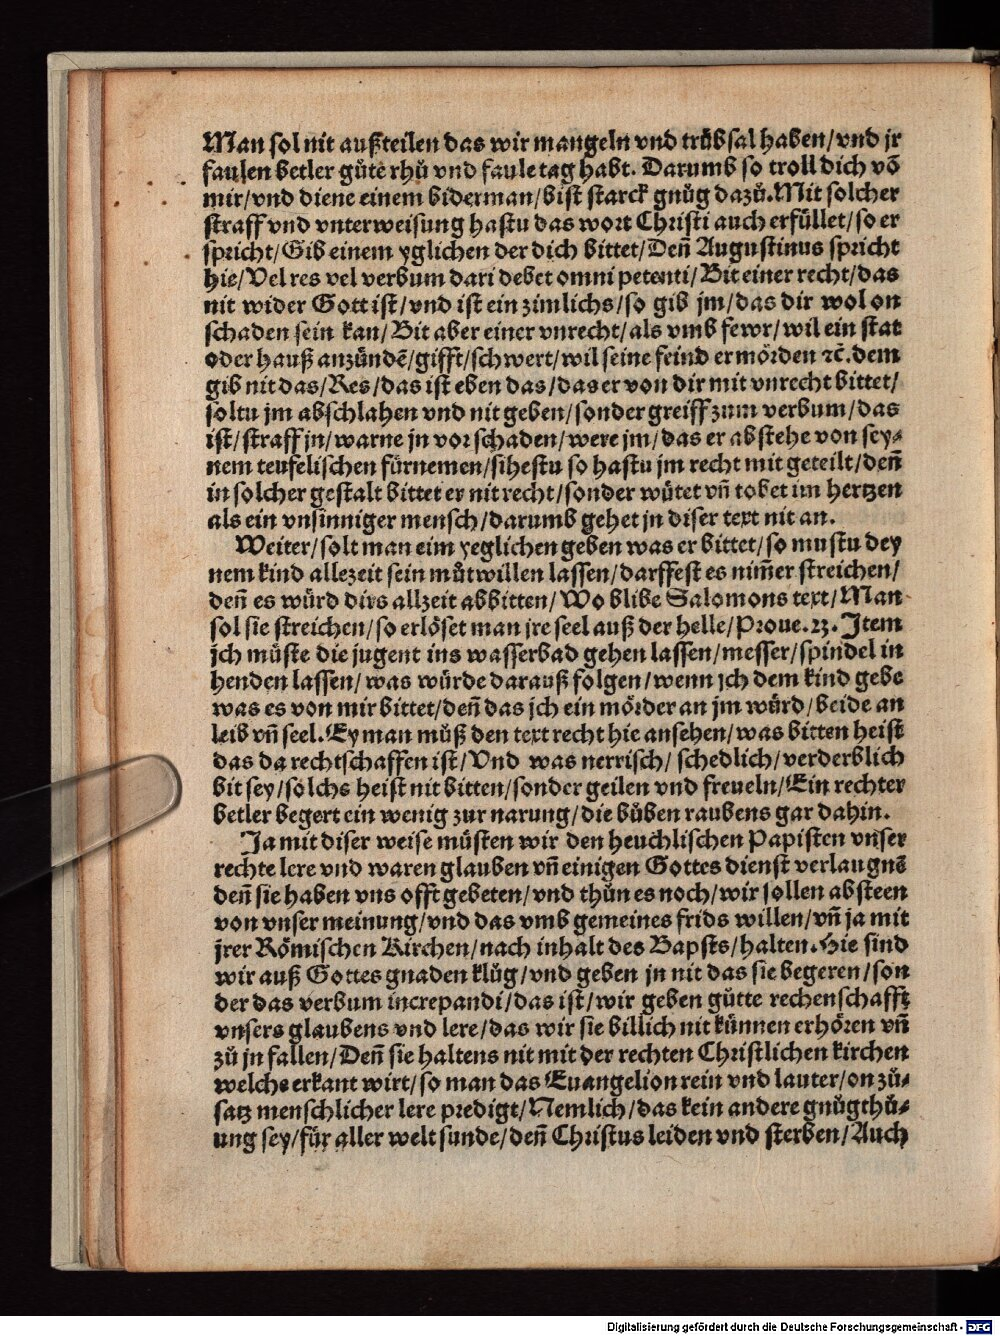 Man sol nit außteilen das wir mangeln vnd trůbsal haben/vnd jr
faulen betler gůte rhů vnd faule tag habt. Darumb so troll dich võ
mir/vnd diene einem biderman/bist starck gnůg dazů. Mit solcher
straff vnd vnterweisung hastu das wort Christi auch erfüllet/so er
spricht/Gib einem yglichen der dich bittet/Deñ Augustinus spricht
hie/Vel res vel verbum dari debet omni petenti/Bit einer recht/das
nit wider Gott ist/vnd ist ein zimlichs/so gib jm/das dir wol on
schaden sein kan/Bit aber einer vnrecht/als vmb fewr/wil ein stat
oder hauß anzündẽ/gifft/schwert/wil seine feind ermörden ꝛc̃. dem
gib nit das/Res/das ist eben das/das er von dir mit vnrecht bittet/
soltu jm abschlahen vnd nit geben/sonder greiff zum verbum/das
ist/straff jn/warne jn vor schaden/were jm/das er abstehe von sey⸗
nem teufelischen fürnemen/sihestu so hastu jm recht mit geteilt/deñ
in solcher gestalt bittet er nit recht/sonder wütet vñ tobet im hertzen
als ein vnsinniger mensch/darumb gehet jn diser text nit an.
Weiter/solt man eim yeglichen geben was er bittet/so mustu dey
nem kind allezeit sein můtwillen lassen/darffest es nim̃er streichen/
deñ es würd dirs allzeit abbitten/Wo blibe Salomons text/Man
sol sie streichen/so erlöset man jre seel auß der helle/Proue. 23. Item
jch müste die jugent ins wasserbad gehen lassen/messer/spindel in
henden lassen/was würde darauß folgen/wenn jch dem kind gebe
was es von mir bittet/deñ das jch ein mörder an jm würd/beide an
leib vñ seel. Ey man můß den text recht hie ansehen/was bitten heist
das da rechtschaffen ist/Vnd was nerrisch/schedlich/verderblich
bit sey/sölchs heist nit bitten/sonder geilen vnd freueln/Ein rechter
betler begert ein wenig zur narung/die bůben raubens gar dahin.
Ja mit diser weise müsten wir den heuchlischen Papisten vnser
rechte lere vnd waren glauben vñ einigen Gottes dienst verlaugnẽ
deñ sie haben vns offt gebeten/vnd thůn es noch/wir sollen absteen
von vnser meinung/vnd das vmb gemeines frids willen/vñ ja mit
jrer Römischen Kirchen/nach inhalt des Bapsts/halten. Hie sind
wir auß Gottes gnaden klůg/vnd geben jn nit das sie begeren/son
der das verbum increpandi/das ist/wir geben gůtte rechenschafft
vnsers glaubens vnd lere/das wir sie billich nit künnen erhören vñ
zů jn fallen/Deñ sie haltens nit mit der rechten Christlichen kirchen
welche erkant wirt/so man das Euangelion rein vnd lauter/on zů⸗
satz menschlicher lere predigt/Nemlich/das kein andere gnůgthů⸗
ung sey/für aller welt sunde/deñ Christus leiden vnd sterben/Auch
Digitalisierung gefördert durch die Deutsche Forschungsgemeinschaft - DFG